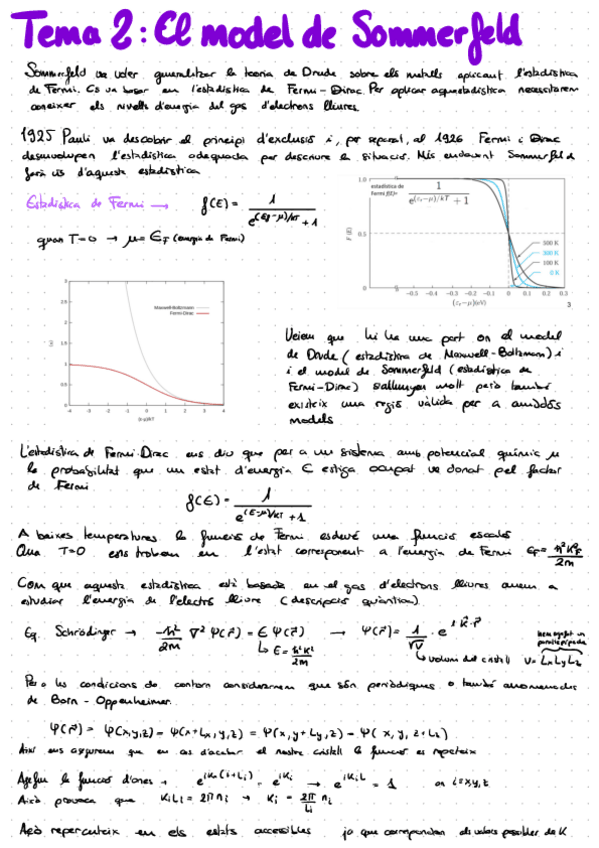 Tema 2: El model de Sommerfeld
Sommerfeld va voler generalitzar la teoria de Drude sobre els metalls aplicant l'estadística
de Fermi. Es va basar en l'estadística de Fermi-Dirac. Per aplicar aquesta estadística necessitarem
conèixer els nivells d'energia del gas d'electrons lliures.
1925 Pauli va descobrir el principi d'exclusió i, per separat, al 1926 Fermi i Dirac
desenvolupen l'estadística adequada per descriure la situació. Més endavant Sommerfeld
farà ús d'aquesta estadística
Estadística de Fermi → f(E) = 1 / e^(Ef-μ)/kT + 1
quan T=0 → μ = E_f (energia de Fermi)
estadística de
Fermi f(E)= 1 / e^(ε_r-μ)/kT + 1
1.0
F (E)
0.5
0
500 K
300 K
100 K
0 K
-0.5 -0.4 -0.3 -0.2 -0.1 0 0.1 0.2 0.3
(ε_r-μ)(eV)
3
3
2.5
2
1.5
1
0.5
0
Maxwell-Boltzmann
Fermi-Dirac
-4 -3 -2 -1 0 1 2 3 4
(ε-μ)/kT
Veiem que hi ha una part on el model
de Drude (estadística de Maxwell-Boltzmann) i
i el model de Sommerfeld (estadística de
Fermi-Dirac) s'allunyen molt però també
existeix una regió vàlida per a ambdós
models
L'estadística de Fermi-Dirac ens diu que per a un sistema amb potencial químic μ
la probabilitat que un estat d'energia E estiga ocupat ve donat pel factor
de Fermi
f(E) = 1 / e^(E-μ)/kT + 1
A baixes temperatures la funció de Fermi esdevé una funció escaló
Quan T=0 ens trobem en l'estat corresponent a l'energia de Fermi E_F = ħ²k_F² / 2m
Com que aquesta estadística està basada en el gas d'electrons lliures anem a
estudiar l'energia de l'electró lliure (descripció quàntica).
Eq. Schrödinger → -ħ²/2m ∇² Ψ(r⃗) = E Ψ(r⃗) → Ψ(r⃗) = 1/√V · e^(i k⃗·r⃗)
↳ E = ħ²k² / 2m
↳ volumi del cristall V = LxLyLz
hem agafat un
paral·lepípede
Per a les condicions de contorn considerarem que són periòdiques o també anomenades
de Born - Oppenheimer.
Ψ(r⃗) = Ψ(x,y,z) = Ψ(x+Lx, y, z) = Ψ(x, y+Ly, z) = Ψ(x, y, z+Lz)
Així ens assegurem que en cas d'acabar el nostre cristall la funció es repeteix
Agafem la funció d'ones → e^(iKi(i+Li)) = e^(iKi) → e^(iKiL) = 1 on i=x,y,z
Això provoca que KiLi = 2πni → Ki = 2π/Li ni
Açò repercuteix en els estats accessibles ja que corresponen als valors possibles de K